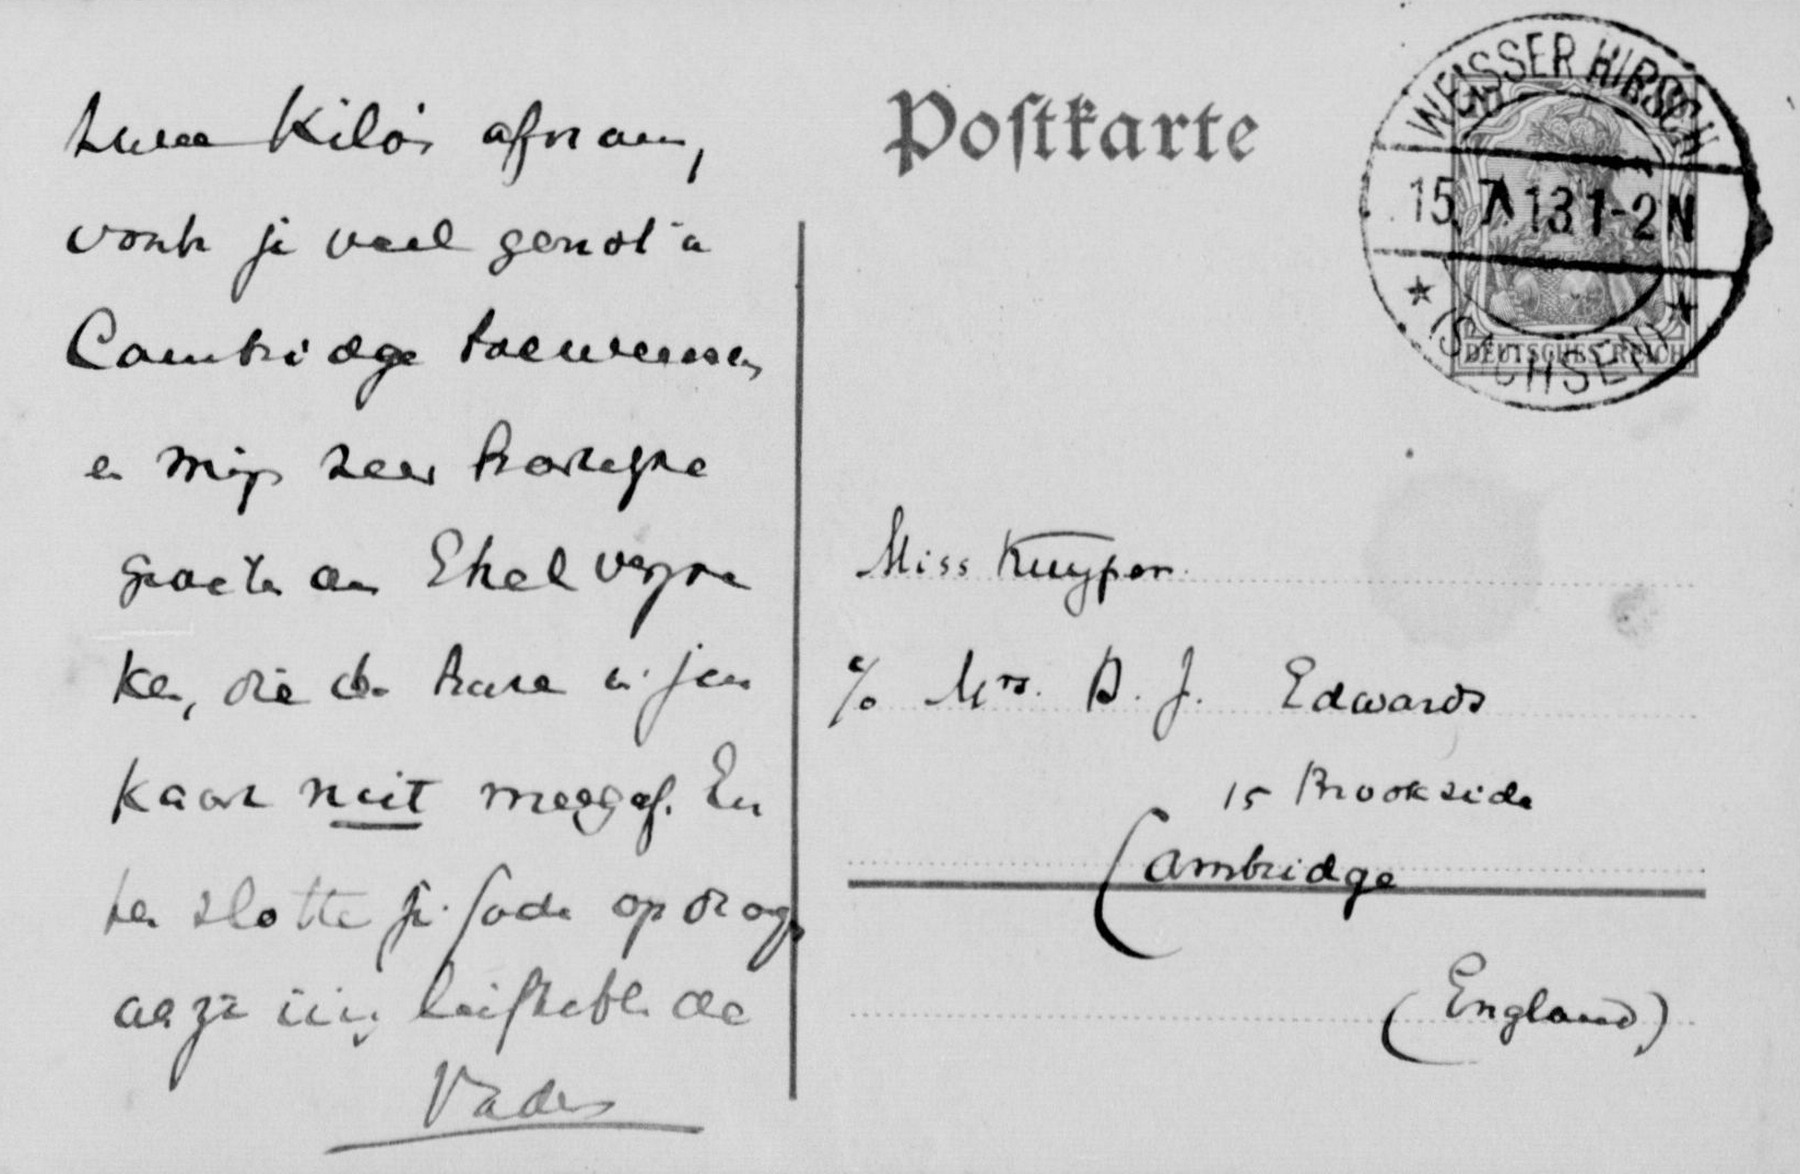 twee Kilo's afnam,
verder je veel genot in
Cambridge toewensen
en mijn zeer hartelijke
groeten aan Ethel verzoe
ken, die de hare in jou
kaart niet meegaf. En
ten slotte je Gode opdragen
als je liefhebbende
Vader
Postkarte
WEISSER HIRSCH
15.7.13 1-2 N
* (SACHSEN) *
DEUTSCHES REICH
Miss Kuyper
c/o Mrs. D. J. Edwards
15 Brookside
Cambridge
(England)